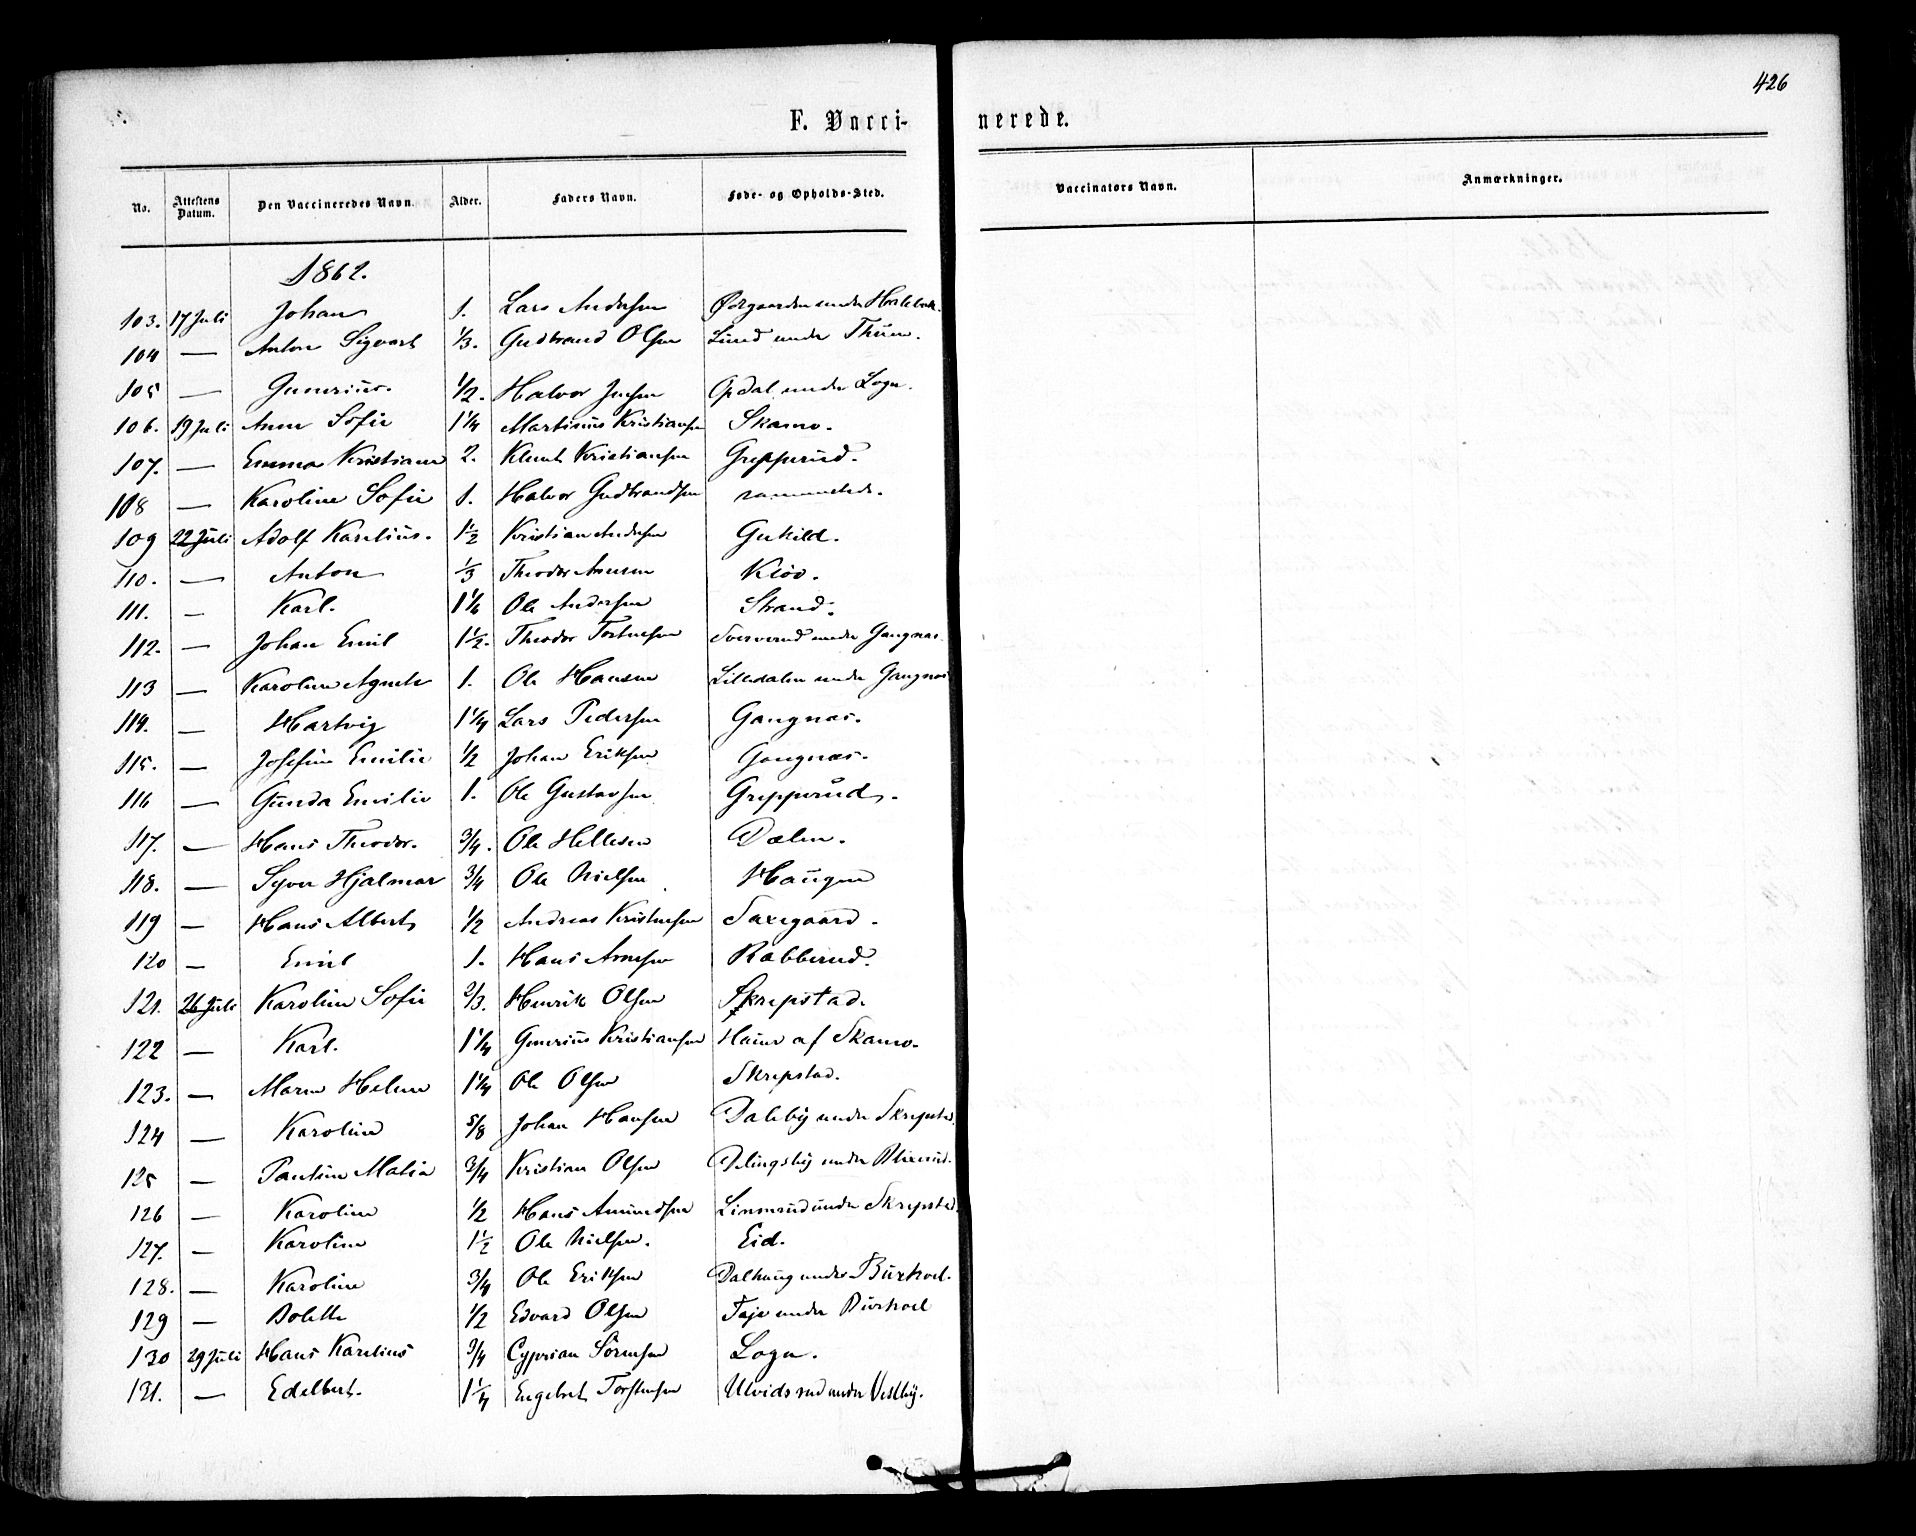 426
F. Vacci- nerede.
No. Attestens Datum. Den Vaccineredes Navn. Alder. Faders Navn. Føde- og Opholds-Sted. Vaccinators Navn. Anmærkninger.
1862.
103. 17 Juli Johan 1. Lars Andersen Ødegaarden under
104 — Anton Sigvart 1/3. Gudbrand Olsen Lund under Thum.
105 — Gunerius. 1/2. Halvor Jensen Opdal under Logn.
106. 19 Juli Anne Sofie 1 1/4 Martinus Kristiansen Skamo.
107. — Emma Kristiane 2. Klemet Kristiansen Grepperud.
108 — Karoline Sofie 1. Halvor Gudbrandsen sammesteds.
109 22 Juli Adolf Karelius. 1 1/2 Kristian Andersen
110. — Anton 1/3 Theodor Arnesen
111. — Karl. Ole Andersen Strand.
112. — Johan Emil 1 1/2. Theodor Torstensen under Gangnæs.
113 — Karoline Agnete 1. Ole Hansen Lilledalen under Gangnæs
114. — Hartvig 1 1/4 Lars Pedersen Gangnæs.
115. — Josefine Emilie 1/2 Johan Eriksen Gangnæs.
116 — Gunda Emilie 1. Ole Gustavsen Grepperud.
117. — Hans Theodor. 3/4. Ole Hellesen Dælen.
118. — Syver Hjalmar 3/4 Ole Nielsen Haugen
119 — Hans Albert 1/2 Andreas Kristensen Saxegaard.
120 — Emil 1. Hans Arnesen Rabberud.
121. 26 Juli Karoline Sofie 2/3. Henrik Olsen Skrepstad.
122 — Karl. 1 1/4 Gunerius Kristiansen af Skamo.
123. — Maren Helene 1 1/4 Ole Olsen Skrepstad.
124 — Karoline 5/8 Johan Hansen Daleby under Skrepstad.
125 — Pauline Matia 3/4 Kristian Olsen under Blixrud.
126 — Karoline 1/2 Hans Amundsen Linnerud under Skrepstad.
127. — Karoline 1 1/2 Ole Nielsen. Eid.
128. — Karoline 3/4 Ole Eriksen Dalhaug under Burhoel.
129 — Bolette 1/2 Edvard Olsen Taje under Burhoel
130 29 Juli Hans Karelius 3/4 Cyprian Sörensen Logn.
131. — Edelbert. 1 1/4 Engebret Torstensen Ulvidsrud under Vestby.